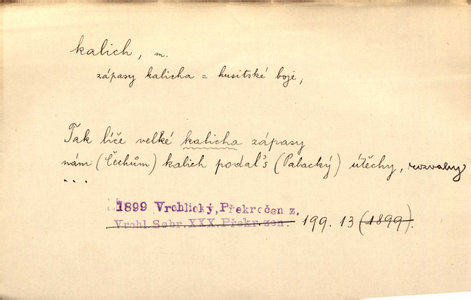 kalich, m.
zápasy kalicha = husitské boje,
Tak líče velké kalicha zápasy
nám (Čechům) kalich podal's (Palacký) útěchy,
...
1899 Vrchlický, Překročen z.
Vrchl. Sebr. XXX. Překr. zen. 199. 13 (1899)